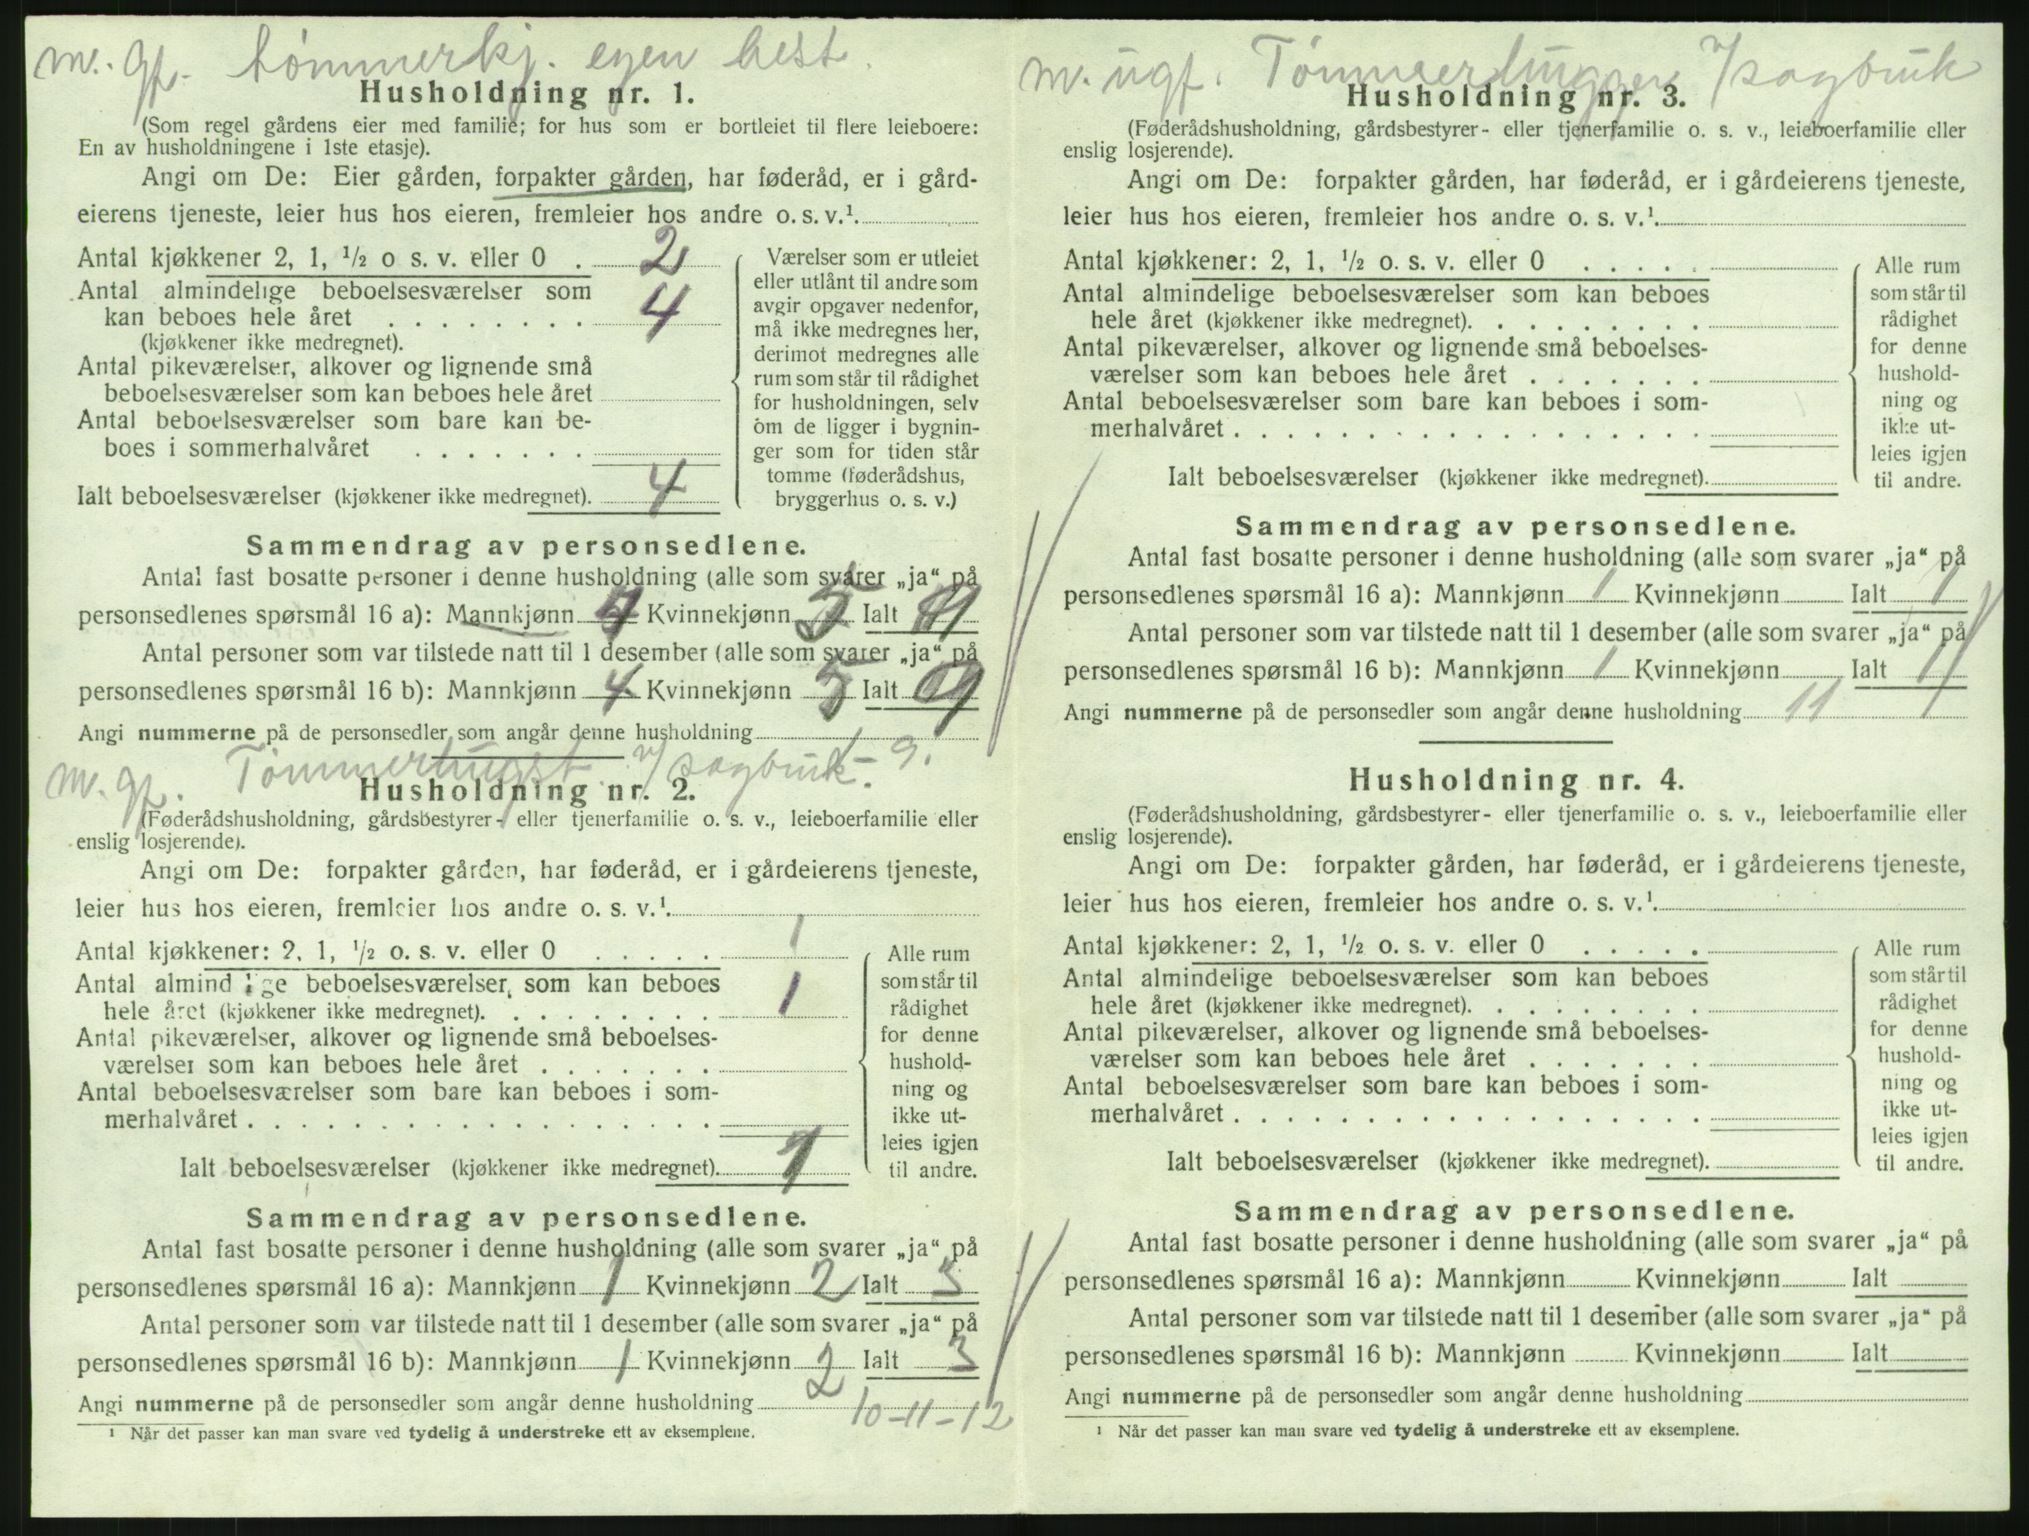 m. gf. tømmerkj. egen hest.
Husholdning nr. 1.
(Som regel gårdens eier med familie; for hus som er bortleiet til flere leieboere:
En av husholdningene i 1ste etasje).
Angi om De: Eier gården, forpakter gården, har føderåd, er i gård-
eierens tjeneste, leier hus hos eieren, fremleier hos andre o. s. v.¹.
Antal kjøkkener 2, 1, ½ o s. v. eller 0 . 2
Antal almindelige beboelsesværelser som
kan beboes hele året . . . . . . . . 4
(kjøkkener ikke medregnet).
Antal pikeværelser, alkover og lignende små
beboelsesværelser som kan beboes hele året
Antal beboelsesværelser som bare kan be-
boes i sommerhalvåret . . . . . . .
Ialt beboelsesværelser (kjøkkener ikke medregnet). 4
Værelser som er utleiet
eller utlånt til andre som
avgir opgaver nedenfor,
må ikke medregnes her,
derimot medregnes alle
rum som står til rådighet
for husholdningen, selv
om de ligger i bygnin-
ger som for tiden står
tomme (føderådshus,
bryggerhus o. s. v.)
Sammendrag av personsedlene.
Antal fast bosatte personer i denne husholdning (alle som svarer „ja“ på
personsedlenes spørsmål 16 a): Mannkjønn Kvinnekjønn 5 Ialt 9
Antal personer som var tilstede natt til 1 desember (alle som svarer „ja“ på
personsedlenes spørsmål 16 b): Mannkjønn 4 Kvinnekjønn 5 Ialt 9
Angi nummerne på de personsedler som angår denne husholdning
1 - 9.
m. gf. Tømmerhugst v/sagbruk
Husholdning nr. 2.
(Føderådshusholdning, gårdsbestyrer- eller tjenerfamilie o. s. v., leieboerfamilie eller
enslig losjerende).
Angi om De: forpakter gården, har føderåd, er i gårdeierens tjeneste,
leier hus hos eieren, fremleier hos andre o. s. v.¹.
Antal kjøkkener: 2, 1, ½ o. s. v. eller 0 . . . . . 1
Antal almindelige beboelsesværelser som kan beboes
hele året (kjøkkener ikke medregnet). . . . . . . . . 1
Antal pikeværelser, alkover og lignende små beboelses-
værelser som kan beboes hele året . . . . . . .
Antal beboelsesværelser som bare kan beboes i som-
merhalvåret . . . . . . . . . . . . . . . . . .
Ialt beboelsesværelser (kjøkkener ikke medregnet). 1
Alle rum
som står til
rådighet
for denne
hushold-
ning og
ikke ut-
leies igjen
til andre.
Sammendrag av personsedlene.
Antal fast bosatte personer i denne husholdning (alle som svarer „ja“ på
personsedlenes spørsmål 16 a): Mannkjønn 1 Kvinnekjønn 2 Ialt 3
Antal personer som var tilstede natt til 1 desember (alle som svarer „ja“ på
personsedlenes spørsmål 16 b): Mannkjønn 1 Kvinnekjønn 2 Ialt 3
Angi nummerne på de personsedler som angår denne husholdning 2 10-11-12
¹ Når det passer kan man svare ved tydelig å understreke ett av eksemplene.
m. ugf. Tømmerhugger v/sagbruk
Husholdning nr. 3.
(Føderådshusholdning, gårdsbestyrer- eller tjenerfamilie o. s. v., leieboerfamilie eller
enslig losjerende).
Angi om De: forpakter gården, har føderåd, er i gårdeierens tjeneste,
leier hus hos eieren, fremleier hos andre o. s. v.¹.
Antal kjøkkener: 2, 1, ½ o. s. v. eller 0 . . . . .
Antal almindelige beboelsesværelser som kan beboes
hele året (kjøkkener ikke medregnet). . . . . . . . .
Antal pikeværelser, alkover og lignende små beboelses-
værelser som kan beboes hele året . . . . . . .
Antal beboelsesværelser som bare kan beboes i som-
merhalvåret . . . . . . . . . . . . . . . . . .
Ialt beboelsesværelser (kjøkkener ikke medregnet).
Alle rum
som står til
rådighet
for denne
hushold-
ning og
ikke ut-
leies igjen
til andre.
Sammendrag av personsedlene.
Antal fast bosatte personer i denne husholdning (alle som svarer „ja“ på
personsedlenes spørsmål 16 a): Mannkjønn 1 Kvinnekjønn Ialt 1
Antal personer som var tilstede natt til 1 desember (alle som svarer „ja“ på
personsedlenes spørsmål 16 b): Mannkjønn 1 Kvinnekjønn Ialt 1
Angi nummerne på de personsedler som angår denne husholdning 11
Husholdning nr. 4.
(Føderådshusholdning, gårdsbestyrer- eller tjenerfamilie o. s. v., leieboerfamilie eller
enslig losjerende).
Angi om De: forpakter gården, har føderåd, er i gårdeierens tjeneste,
leier hus hos eieren, fremleier hos andre o. s. v.¹.
Antal kjøkkener: 2, 1, ½ o. s. v. eller 0 . . . . .
Antal almindelige beboelsesværelser som kan beboes
hele året (kjøkkener ikke medregnet). . . . . . . . .
Antal pikeværelser, alkover og lignende små beboelses-
værelser som kan beboes hele året . . . . . . .
Antal beboelsesværelser som bare kan beboes i som-
merhalvåret . . . . . . . . . . . . . . . . . .
Ialt beboelsesværelser (kjøkkener ikke medregnet).
Alle rum
som står til
rådighet
for denne
hushold-
ning og
ikke ut-
leies igjen
til andre.
Sammendrag av personsedlene.
Antal fast bosatte personer i denne husholdning (alle som svarer „ja“ på
personsedlenes spørsmål 16 a): Mannkjønn Kvinnekjønn Ialt
Antal personer som var tilstede natt til 1 desember (alle som svarer „ja“ på
personsedlenes spørsmål 16 b): Mannkjønn Kvinnekjønn Ialt
Angi nummerne på de personsedler som angår denne husholdning
¹ Når det passer kan man svare ved tydelig å understreke ett av eksemplene.